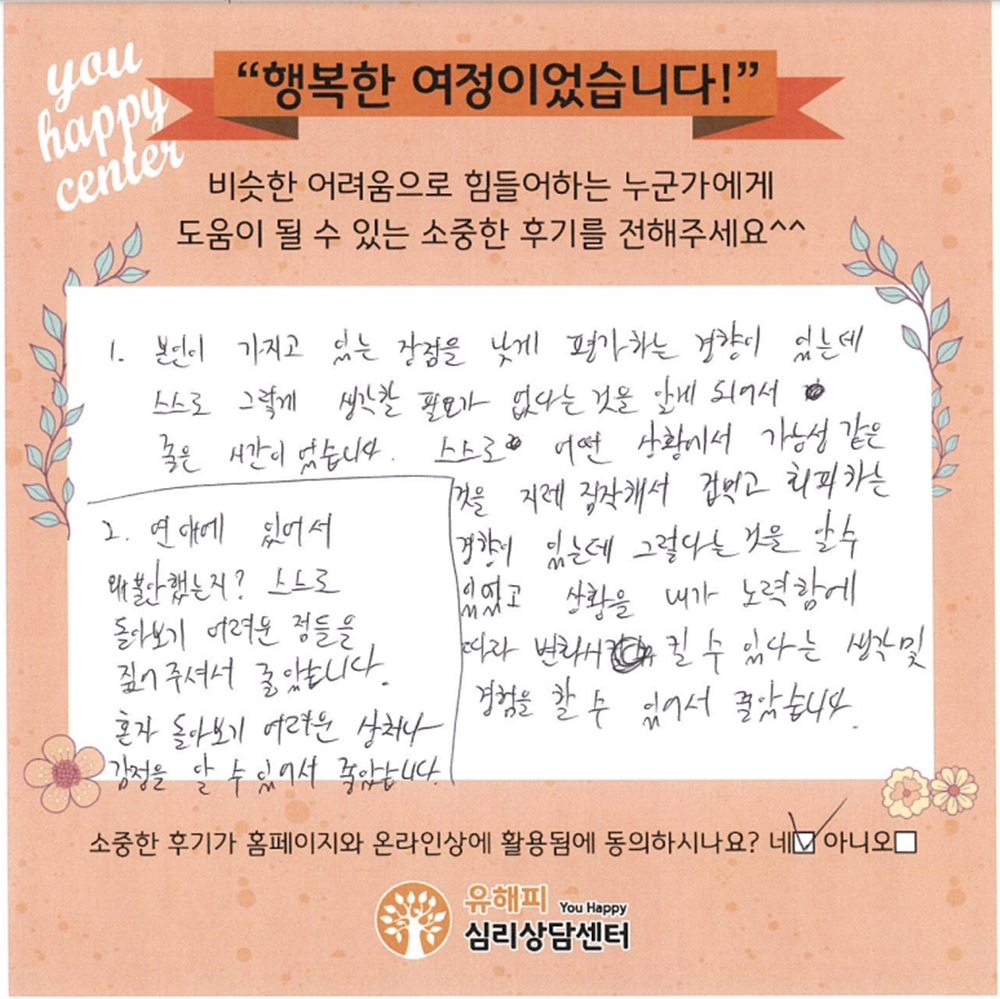 you
happy
center
“행복한 여정이었습니다!”
비슷한 어려움으로 힘들어하는 누군가에게
도움이 될 수 있는 소중한 후기를 전해주세요^^
1. 본인이 가지고 있는 장점을 낮게 평가하는 경향이 있는데
스스로 그렇게 생각할 필요가 없다는 것을 알게 되어서
좋은 시간이었습니다. 스스로 어떤 상황에서 가능성 같은
것을 지레 짐작해서 겁먹고 회피하는
경향이 있는데 그렇다는 것을 알수
있었고 상황을 내가 노력함에
따라 변화시킬 수 있다는 생각 및
경험을 할 수 있어서 좋았습니다.
2. 연애에 있어서
왜 불안했는지? 스스로
돌아보기 어려운 점들을
짚어주셔서 좋았습니다.
혼자 돌아보기 어려운 상처나
감정을 알 수 있어서 좋았습니다.
소중한 후기가 홈페이지와 온라인상에 활용됨에 동의하시나요? 네☑ 아니오□
유해피 You Happy
심리상담센터